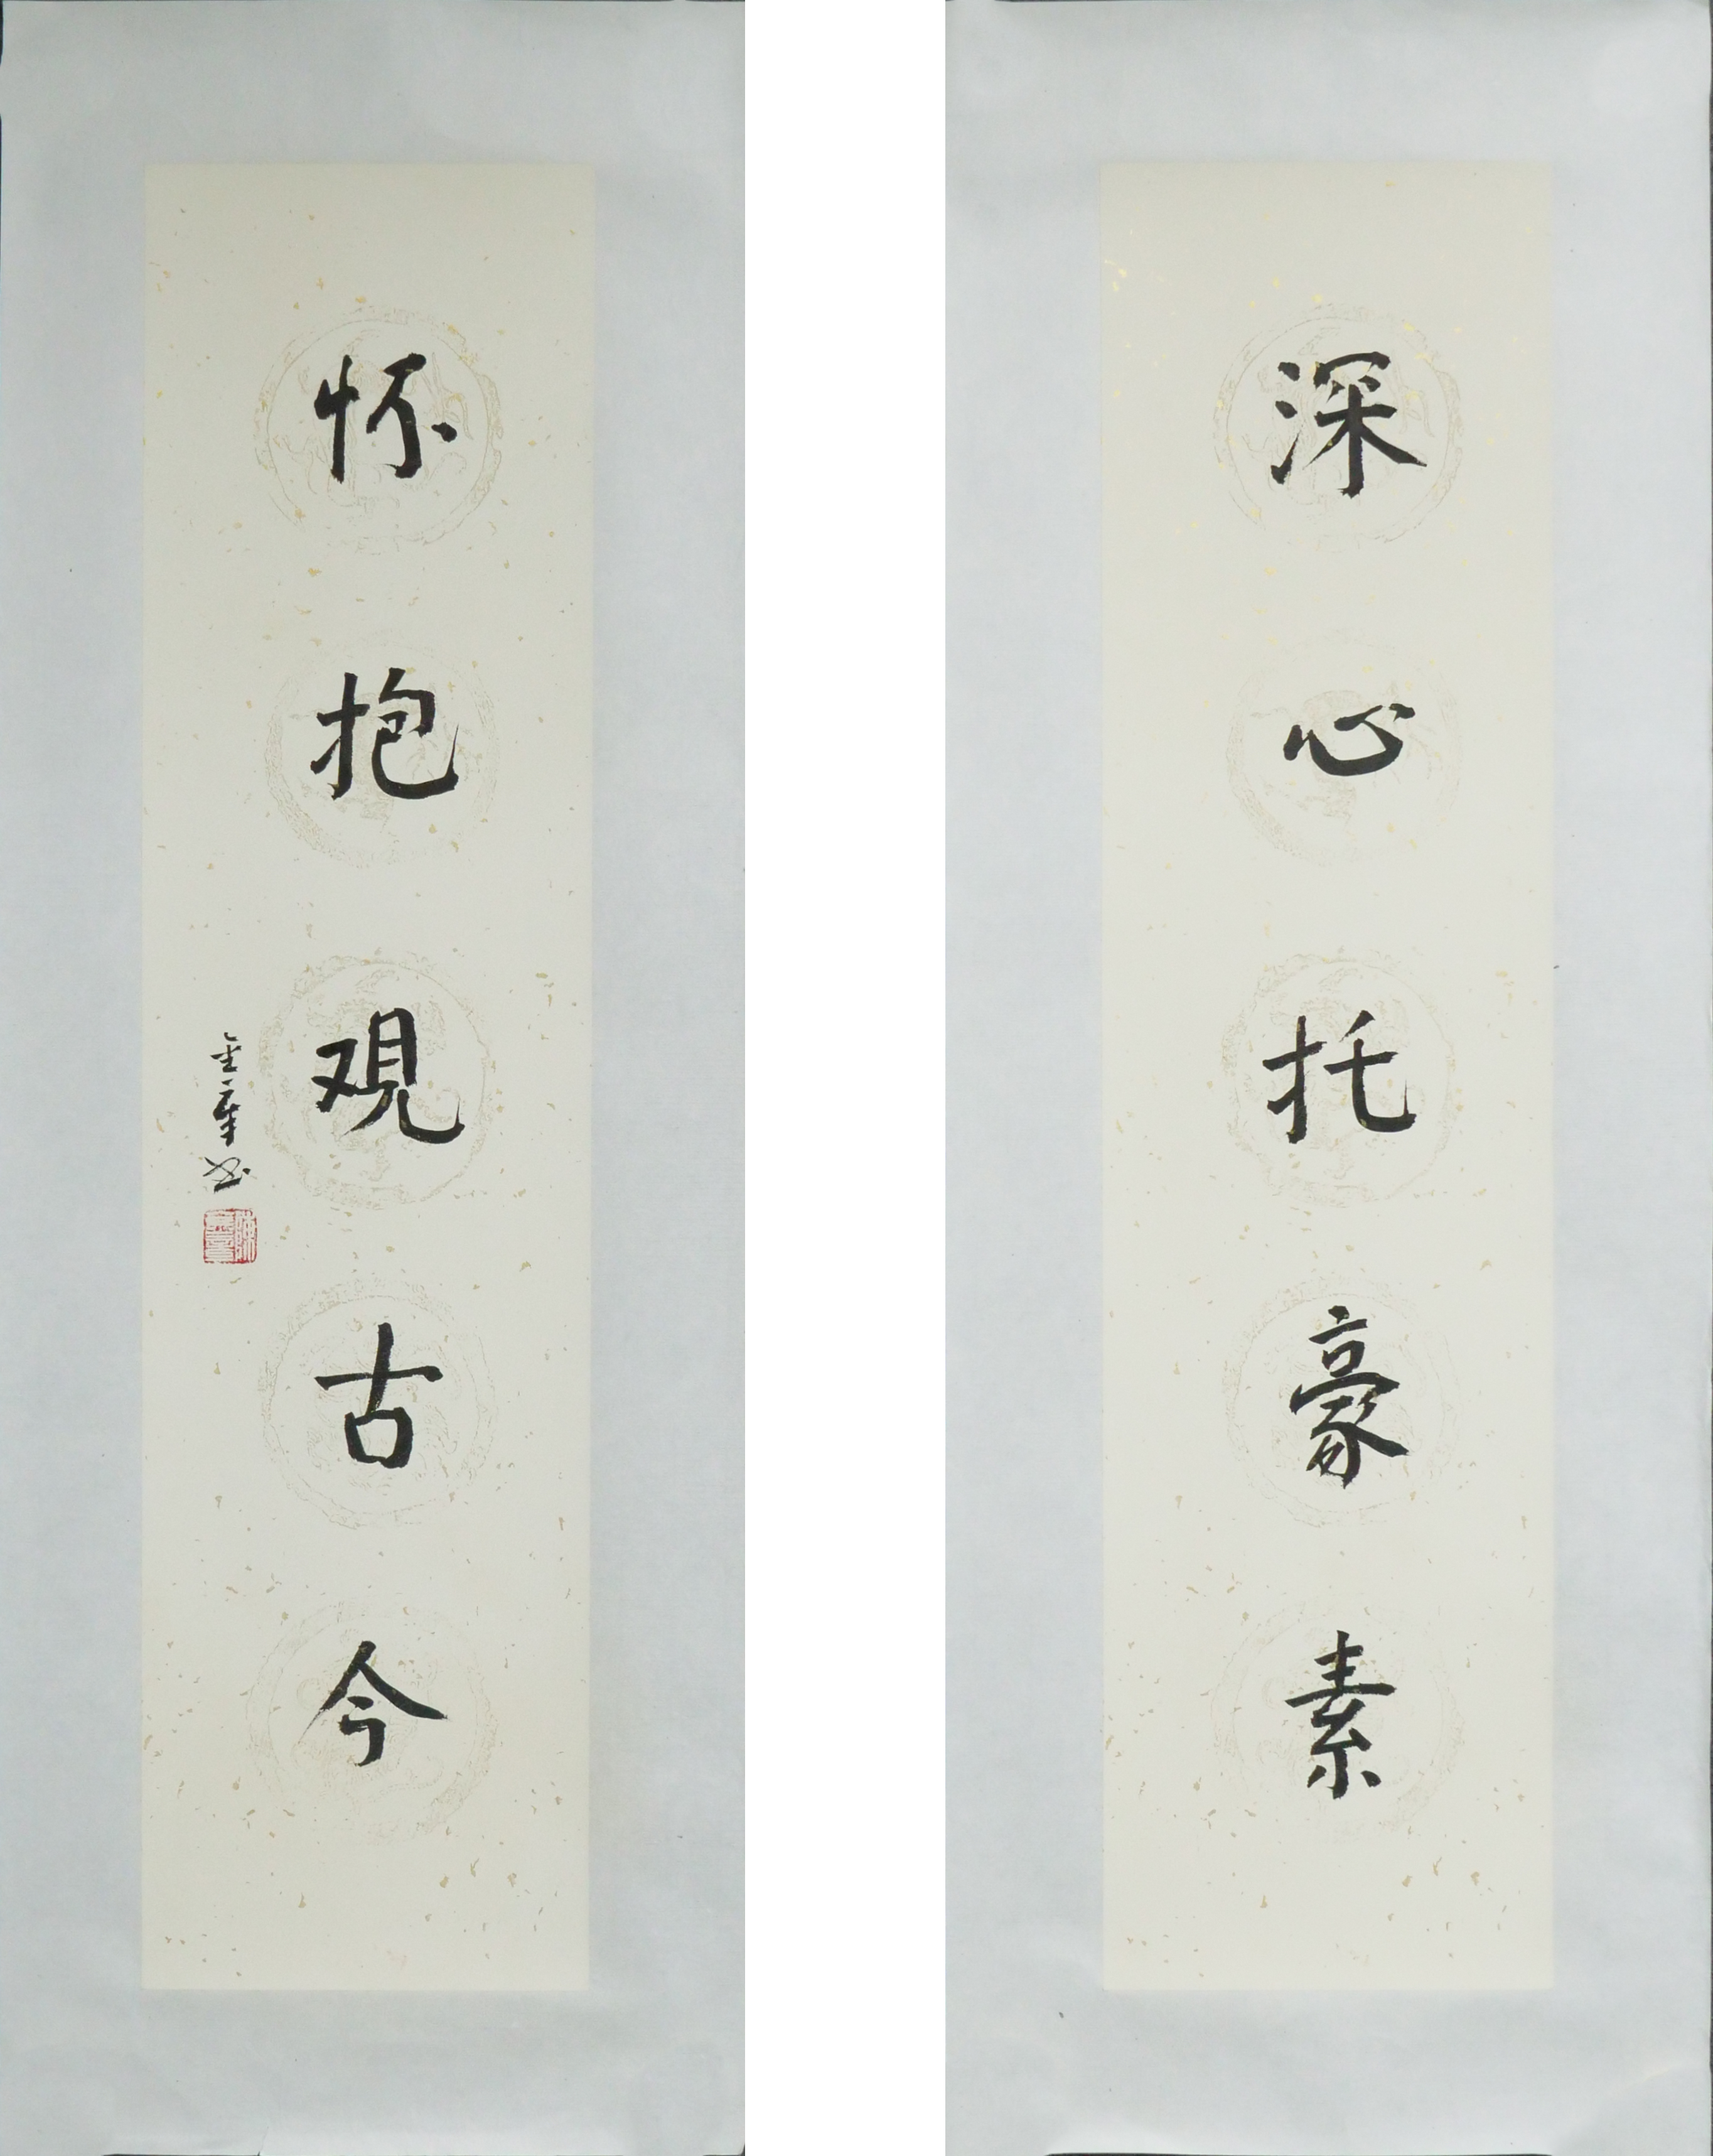 深心托豪素
怀抱观古今
金章书